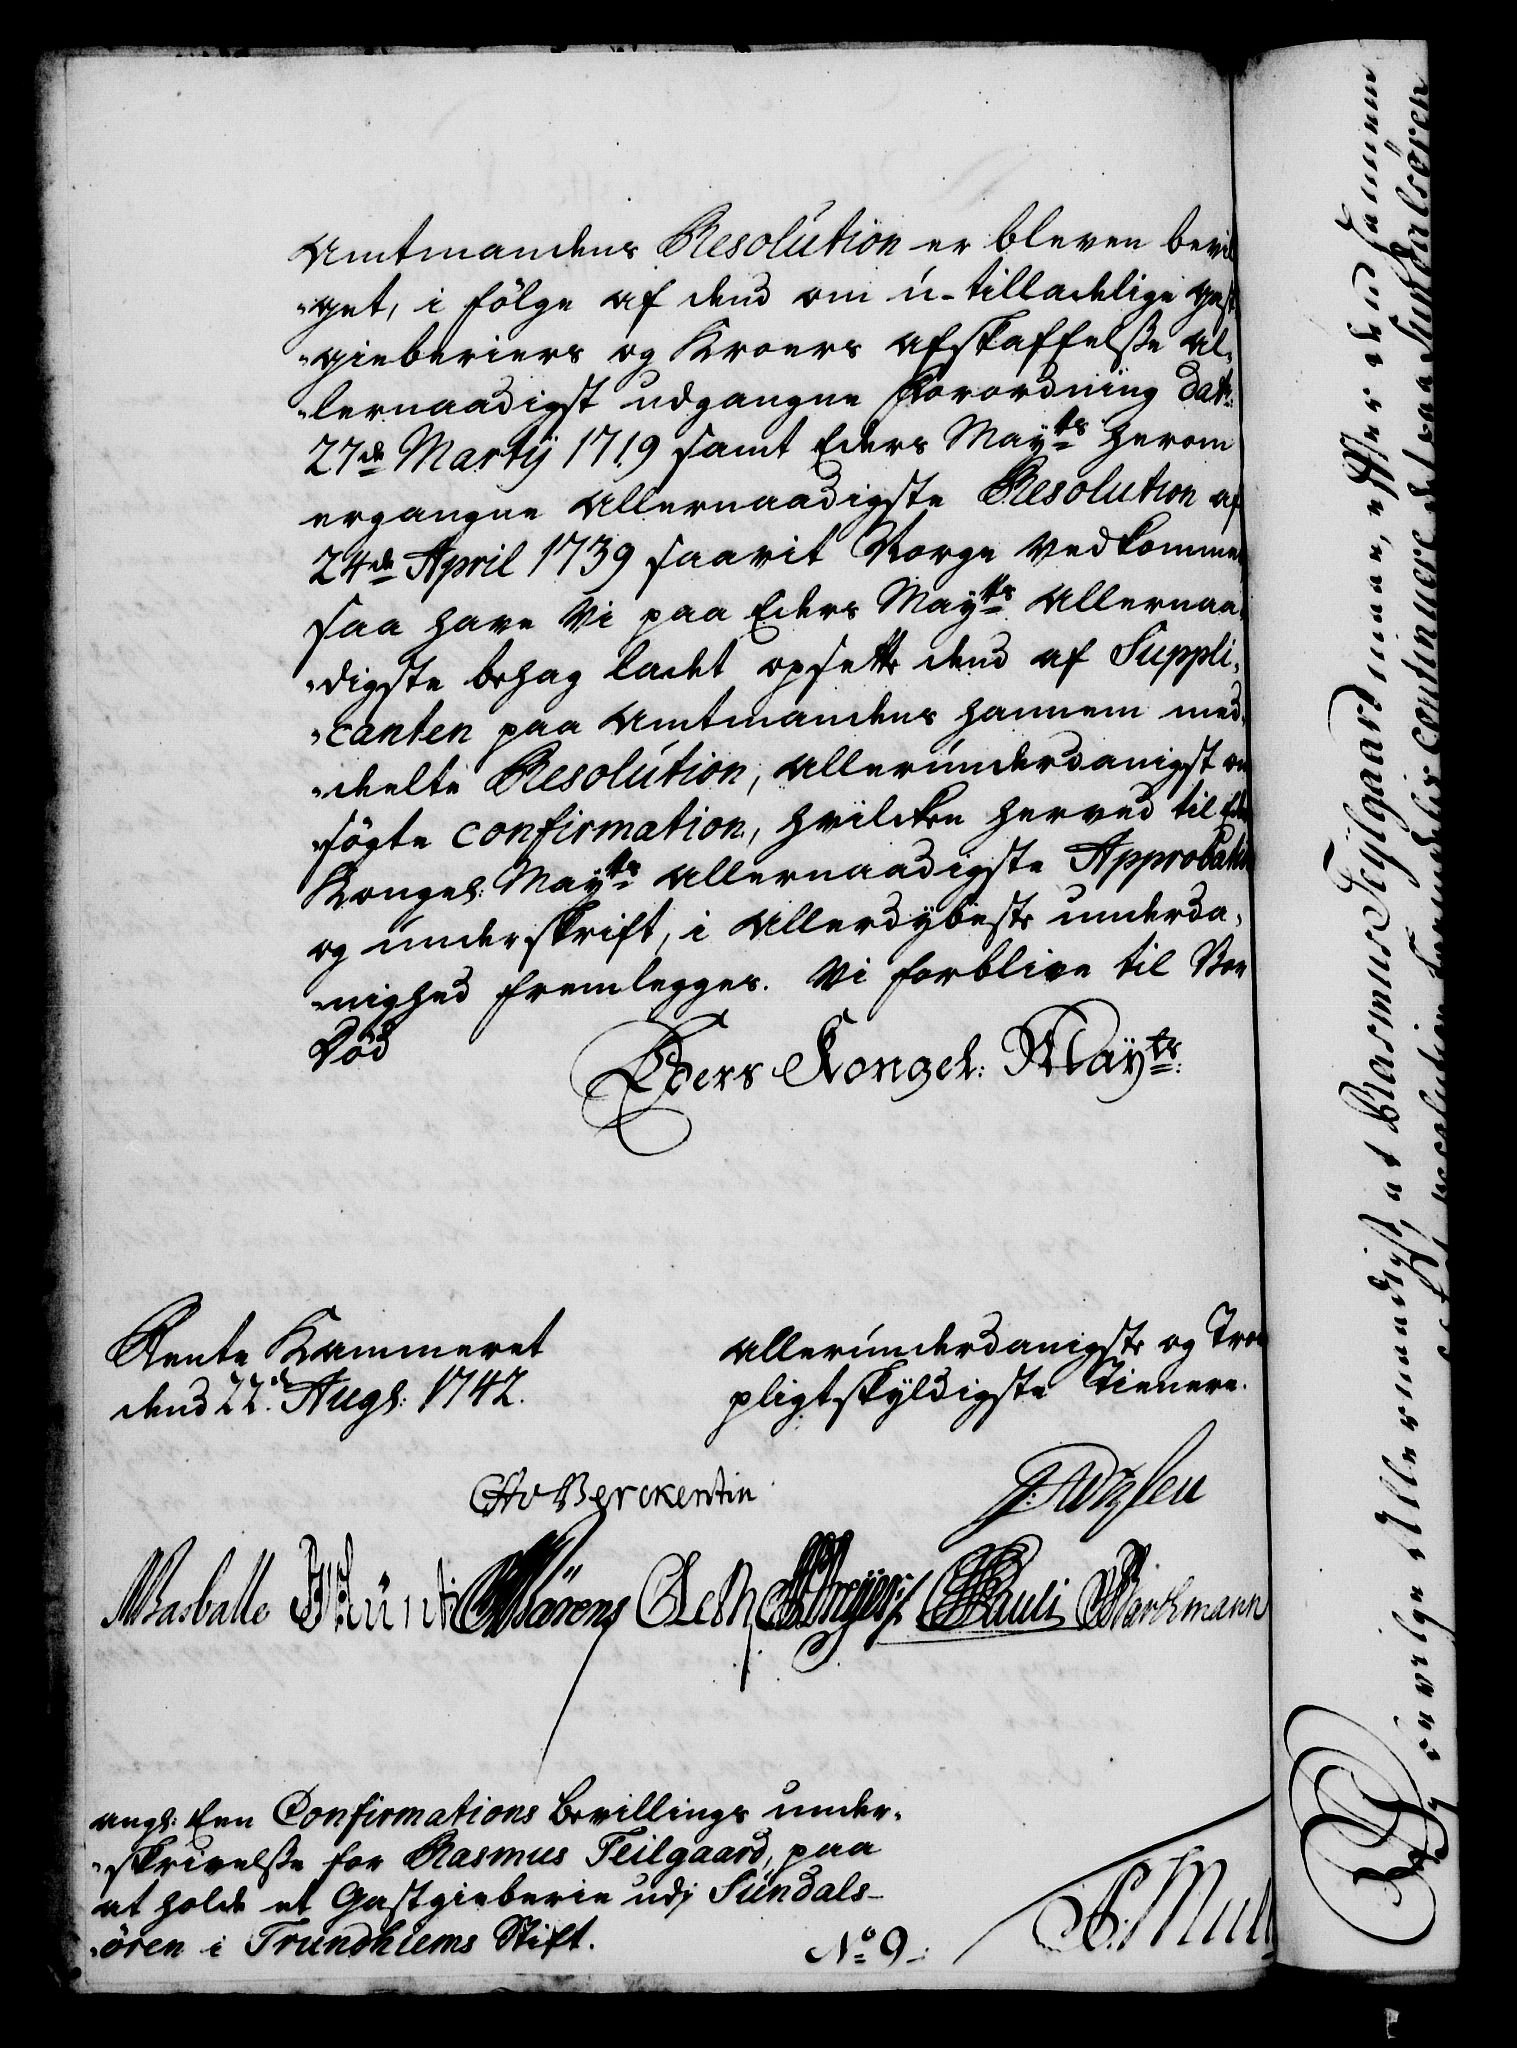 Amtmandens Resolution er bleven bevil
-get, i følge af dend om u-tilladelige gest
-gieberiers og Kroers afskaffelße al-
-lernaadigst udgangne Forordning dat:
27de Martij 1719 samt Eders Mayts herom
ergangne allernaadigste Resolution af
24de April 1739 saavit Norge vedkommer
saa have Vi paa Eders Mayts allernaa-
-digste behag ladet opsette dend af Suppli-
-canten paa Amtmandens hannem med-
-deelte Resolution, allerunderdanigst an
-søgte confirmation, hvilcken herved til Eders
Kongel: Mayts allernaadigste Approbation
og underskrift, i allerdybeste underda-
-nighed fremlegges. Vi forblive til Vor
Død
Eders Kongel: Mayts:
Rente Kammeret
dend 22de Augs: 1742.
allerunderdanigste og Troe
pligtskyldigste Tienere.
CAv Berckentin
Basballe
Pauli
Barkmann
angl: Een Confirmations bevillings under-
-skrivelße for Rasmus Teilgaard, paa
at holde et Gastgieberie udj Sundals-
-ören i Trundhiems Stift.
No 9.
Mull
bevilge Allernaadigst, at Rasmus Teylgaard maae, efter den hannem
resolution fremdeelis continuere det paa Sundalsören